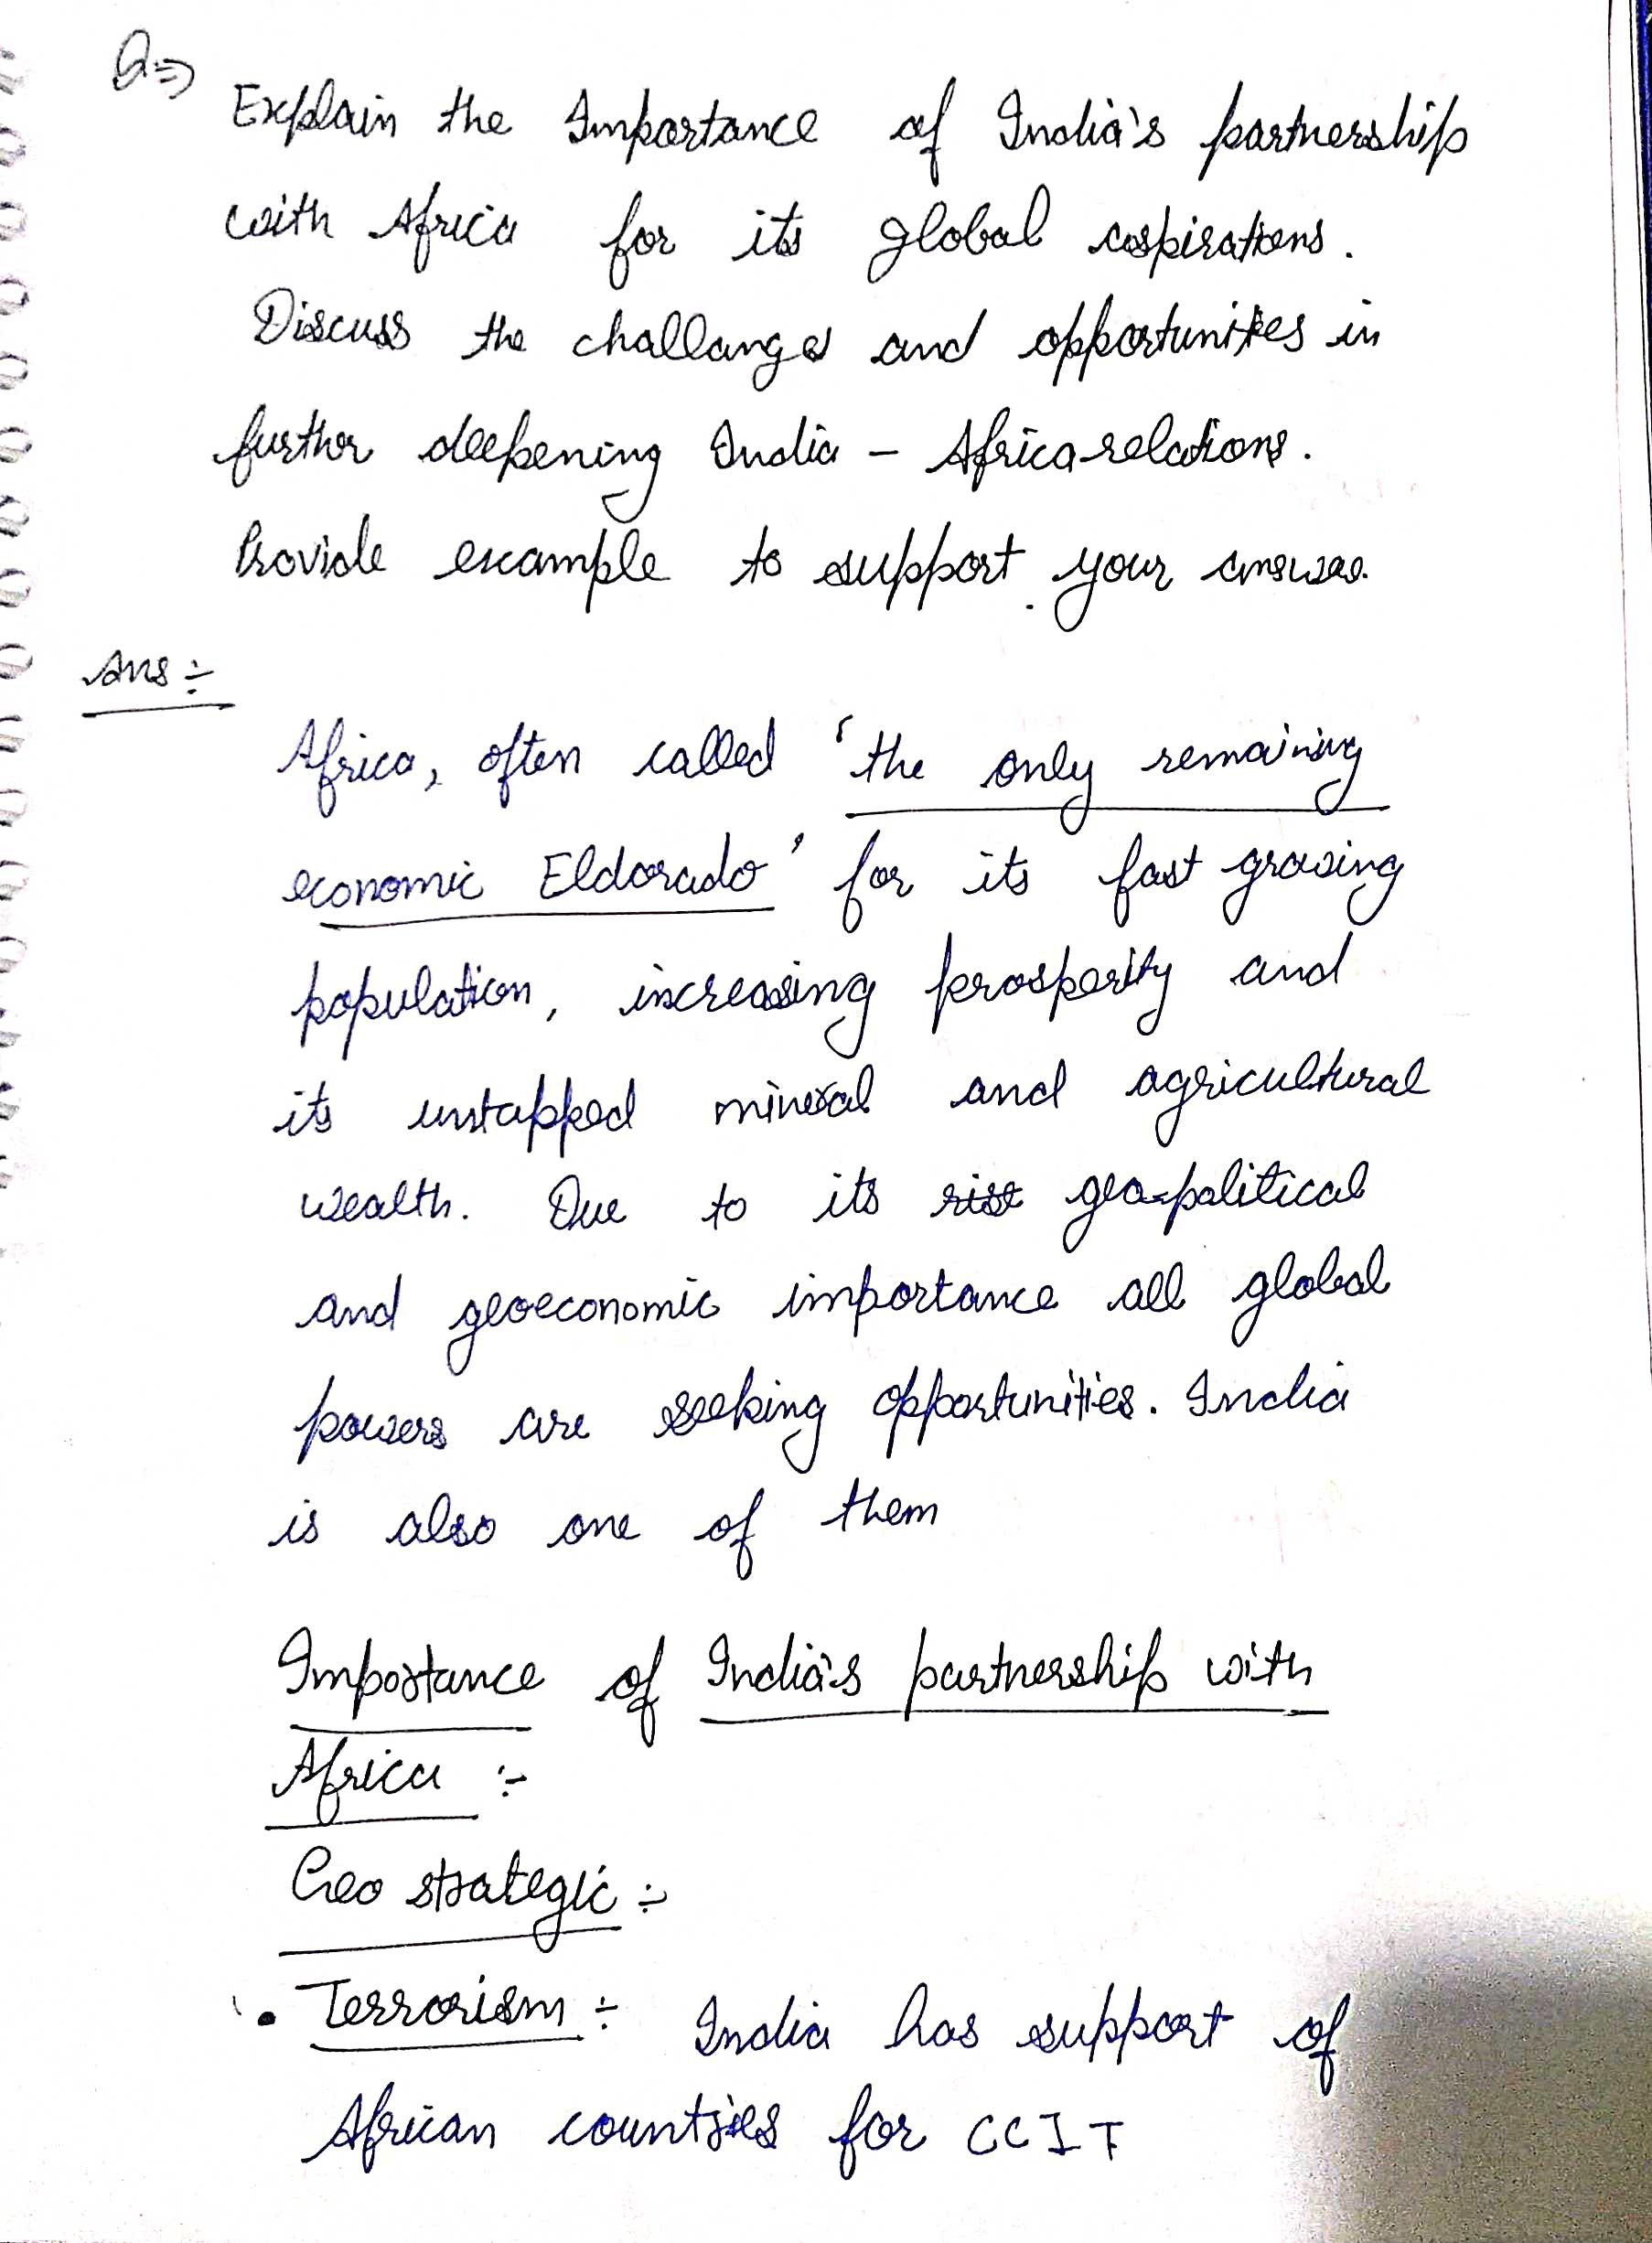 Q⇒
Explain the Importance of India's partnership
with Africa for its global aspirations.
Discuss the challanges and opportunities in
further deepening India - Africa relations.
Provide example to support your answer.
Ans ÷
Africa, often called 'the only remaining
economic Eldorado' for its fast growing
population, increasing prosperity and
its untapped mineral and agricultural
wealth. Due to its geo-political
and geoeconomic importance all global
powers are seeking opportunities. India
is also one of them
Importance of India's partnership with
Africa :-
Geo strategic ÷
• Terrorism ÷ India has support of
African countries for CCIT